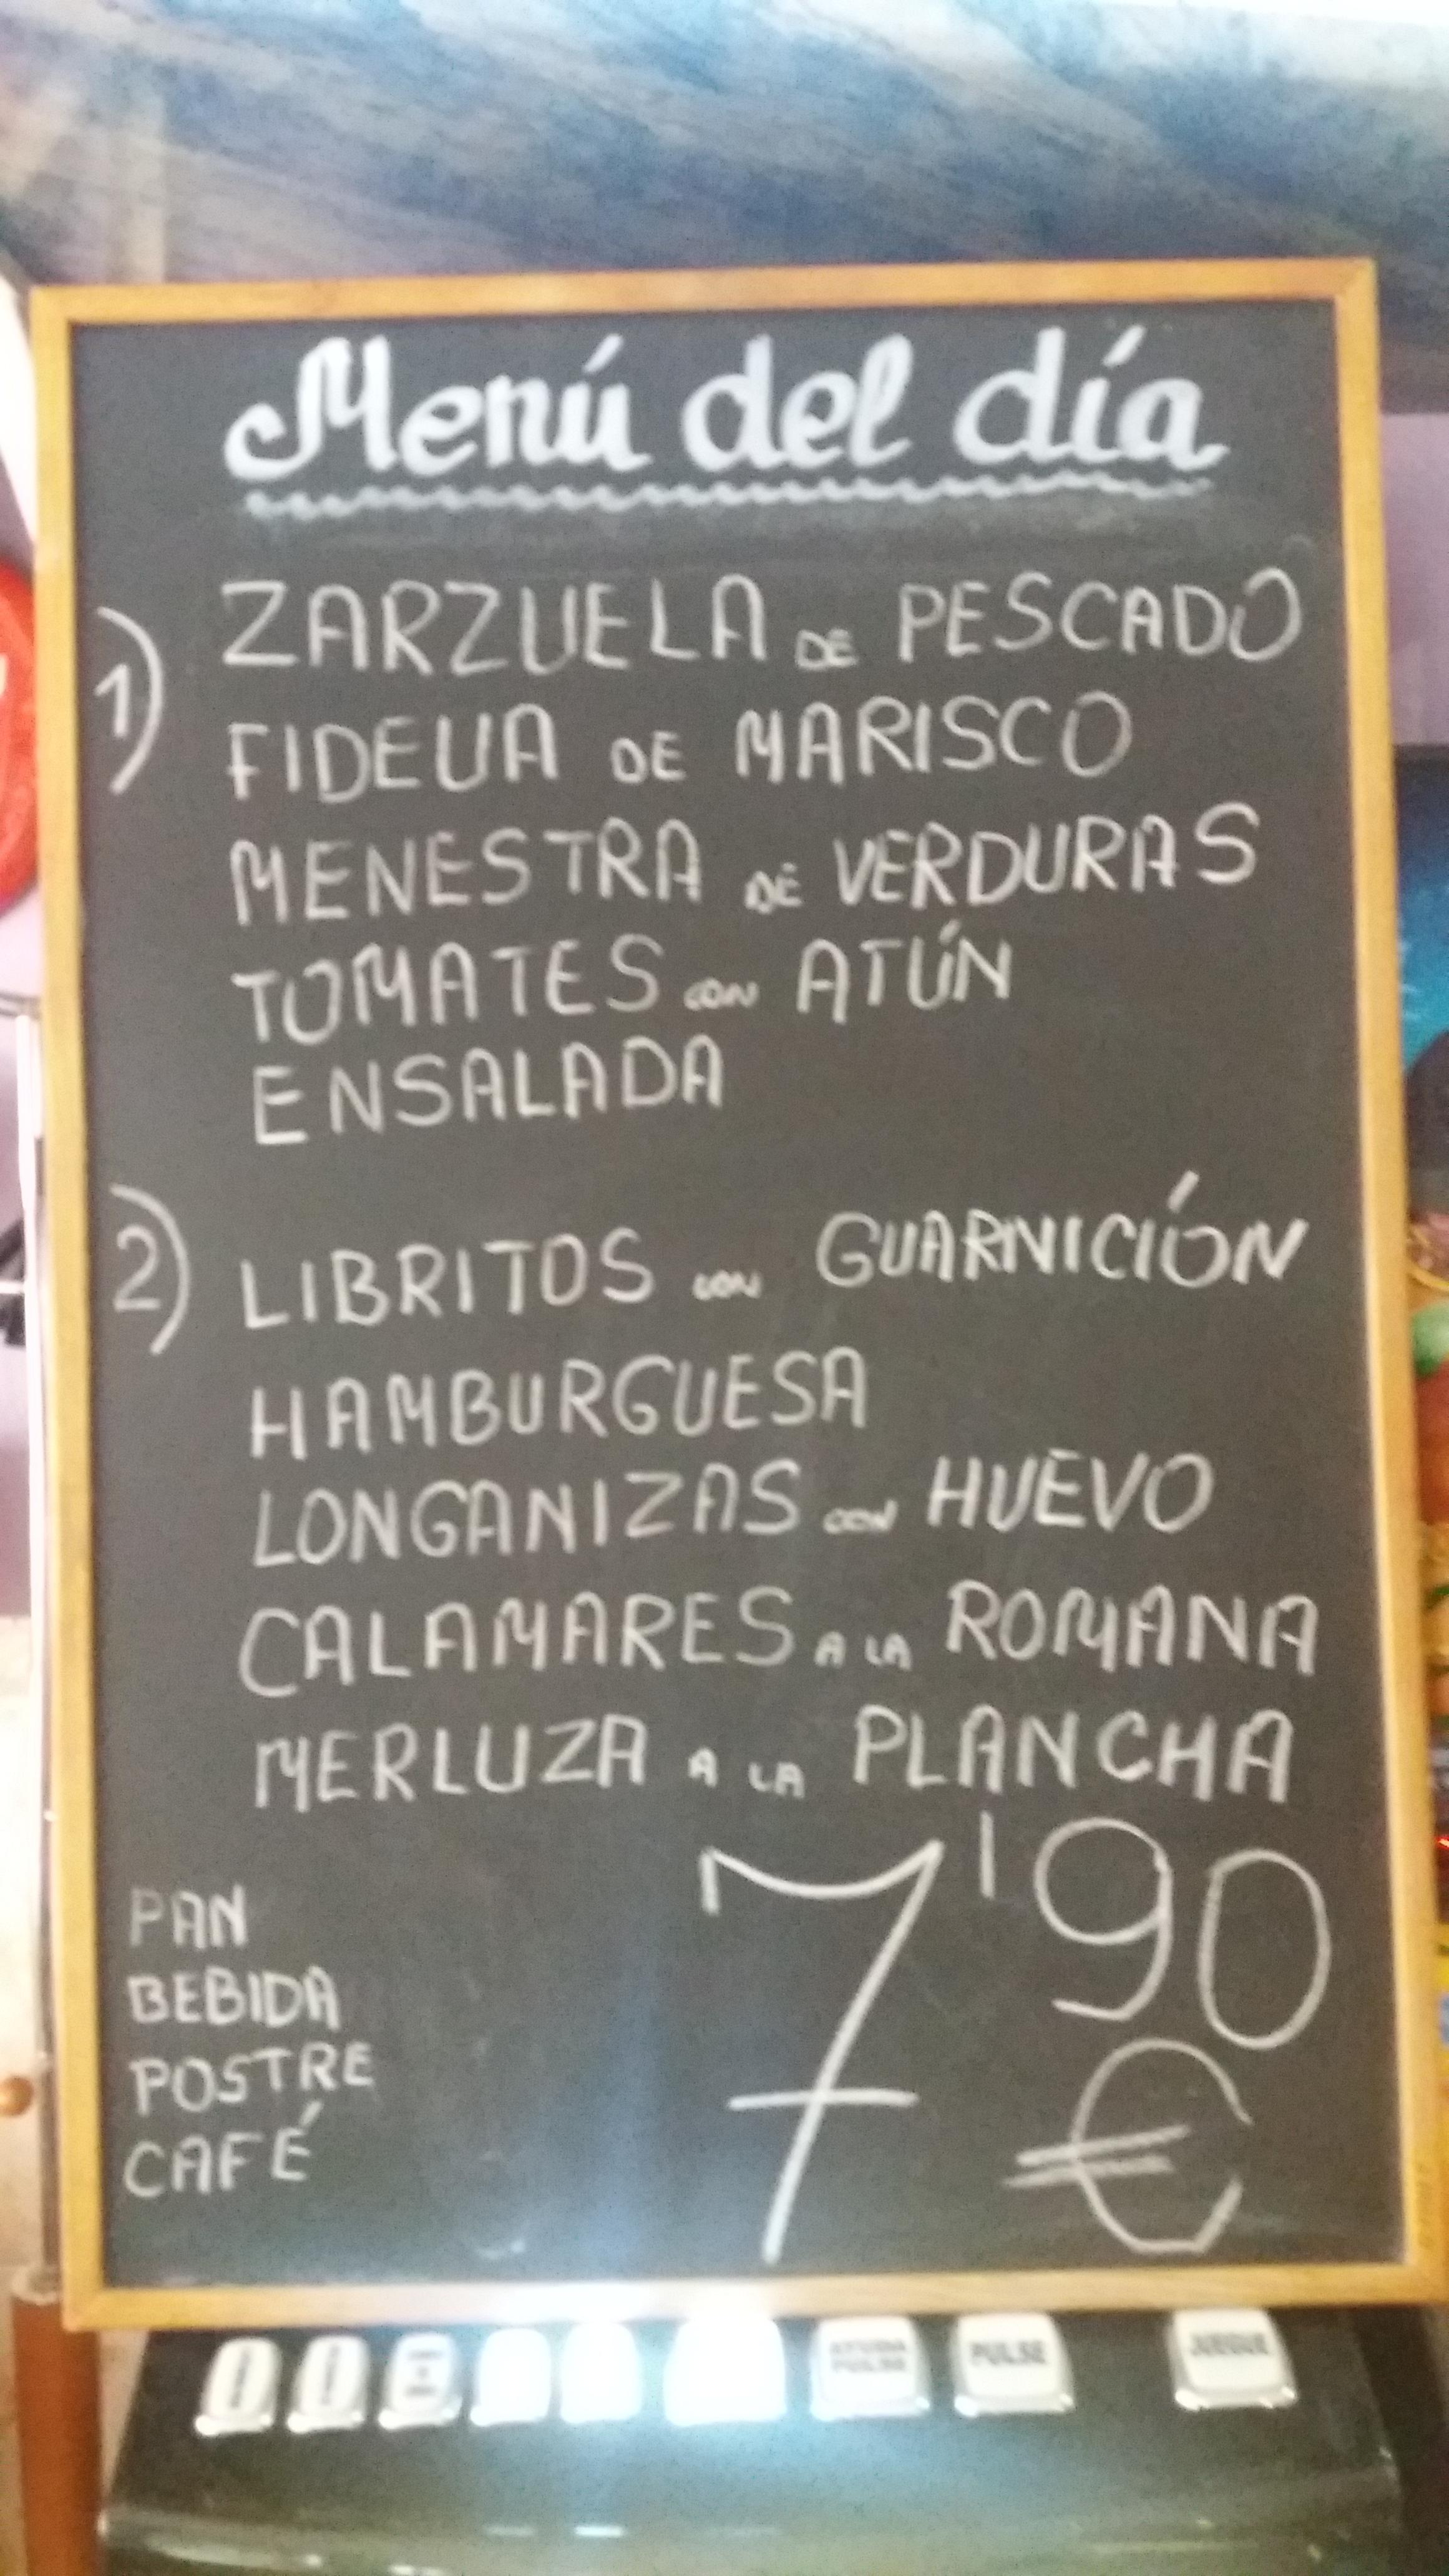 Menú del día
1) ZARZUELA DE PESCADO
FIDEUA DE MARISCO
MENESTRA DE VERDURAS
TOMATES CON ATÚN
ENSALADA
2) LIBRITOS CON GUARNICIÓN
HAMBURGUESA
LONGANIZAS CON HUEVO
CALAMARES A LA ROMANA
MERLUZA A LA PLANCHA
7'90 €
PAN
BEBIDA
POSTRE
CAFÉ
PULSE
JUEGUE